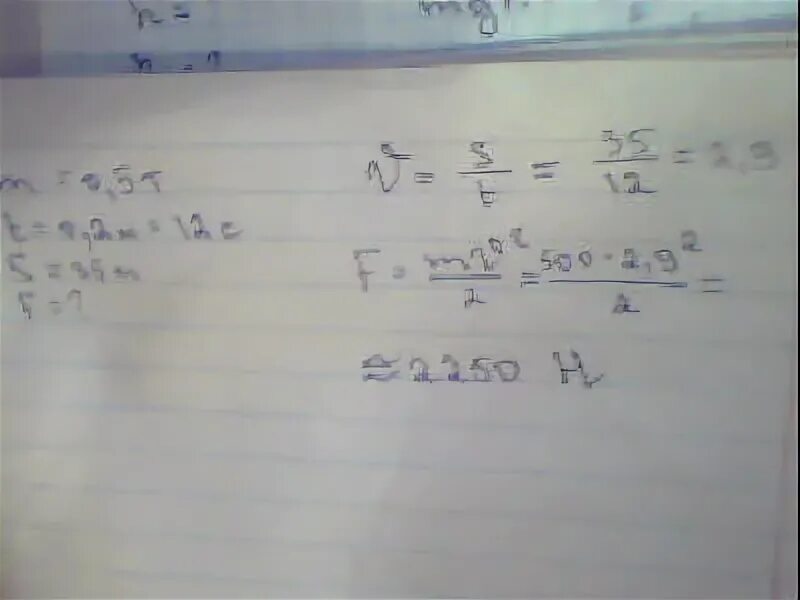 h =
h = ?
m = 0,5т
t = 0,2м = 12с
S = 35м
F = ?
v = S/t = 35/12 = 2,9
F = mv²/2 = 500 · 2,9²/2 =
≈ 2250 Н